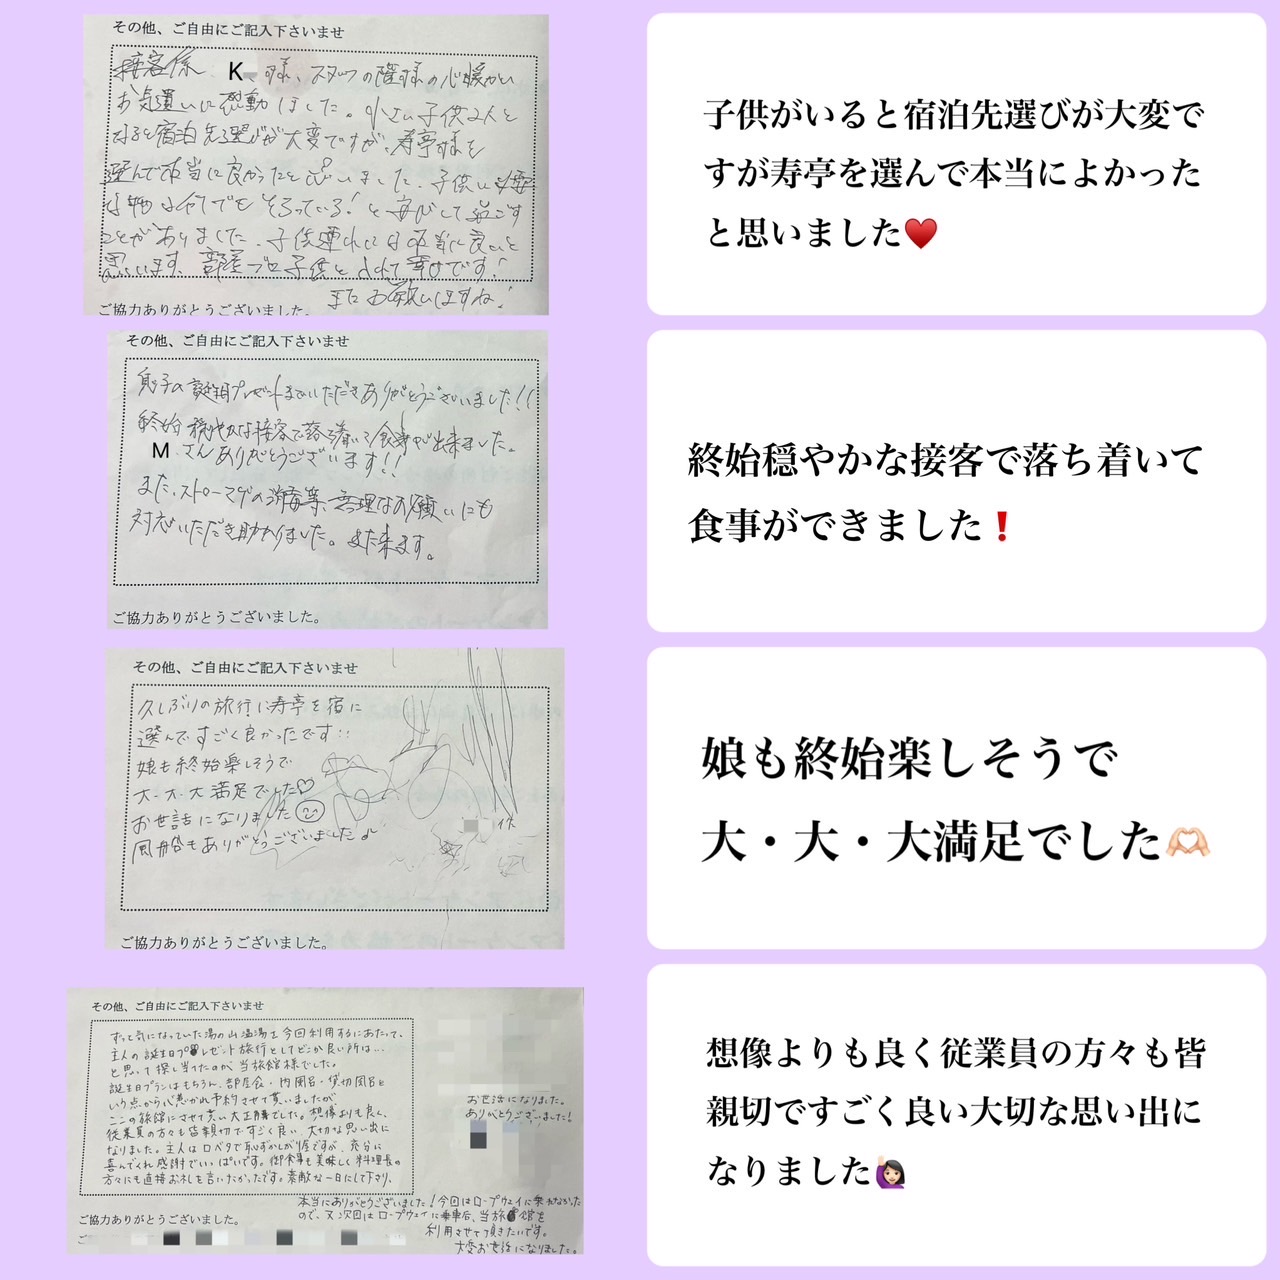 その他、ご自由にご記入下さいませ
接客係 K 様、スタッフの皆様の心暖かい
お気遣いに感動しました。小さい子供2人と
なると宿泊先選びが大変ですが、寿亭様を
選んで本当に良かったと思いました。子供に必要
な物は全てでもそろっている！と安心して過ごす
ことがありました。子供連れには本当に良いと
思います。部屋ブロ子供と入れて幸せです！
またお願いしますね！
ご協力ありがとうございました。
子供がいると宿泊先選びが大変で
すが寿亭を選んで本当によかった
と思いました♥️
その他、ご自由にご記入下さいませ
息子の誕生日プレゼントまでいただきありがとうございました！！
終始穏やかな接客で落ち着いて食事が出来ました。
M さんありがとうございます！！
また、ストローマグの消毒等、無理なお願いにも
対応いただき助かりました。また来ます。
ご協力ありがとうございました。
終始穏やかな接客で落ち着いて
食事ができました❗
その他、ご自由にご記入下さいませ
久しぶりの旅行に寿亭を宿に
選んですごく良かったです！！
娘も終始楽しそうで
大・大・大満足でした♡
お世話になりました
風船もありがとうございました♪
作
ご協力ありがとうございました。
娘も終始楽しそうで
大・大・大満足でした🫶🏻
その他、ご自由にご記入下さいませ
ずっと気になっていた湯の山温湯を今回利用するにあたって、
主人の誕生日プレゼント旅行としてどこか良い所は…
と思って探し当てたのが当旅館様でした。
誕生日プランはもちろん、部屋食・内風呂・貸切風呂と
いう点から心惹かれ予約させて貰いましたが
ここの旅館にさせて貰い大正解でした。想像よりも良く、
従業員の方々も皆親切ですごく良い、大切な思い出に
なりました。主人は口ベタで恥ずかしがり屋ですが、充分に
喜んでくれ感謝でいっぱいです。御食事も美味しく料理長の
方々にも直接お礼を言いたかったです。素敵な一日にして下さり、
本当にありがとうございました！今回はロープウェイに乗れなかった
ので、又次回はロープウェイに乗車后、当旅館を
利用させて頂きたいです。
大変お世話になりました。
お世話になりました。
ありがとうございました！
ご協力ありがとうございました。
ご
想像よりも良く従業員の方々も皆
親切ですごく良い大切な思い出に
なりました🙋🏻‍♀️